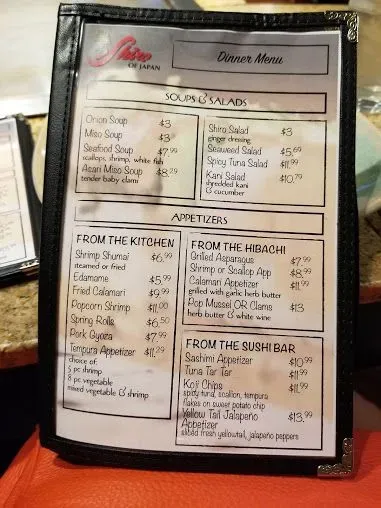 Shiro
OF JAPAN
Dinner Menu
SOUPS & SALADS
Onion Soup $3
Miso Soup $3
Seafood Soup $7.99
scallops, shrimp, white fish
Asari Miso Soup $8.29
tender baby clams
Shiro Salad $3
ginger dressing
Seaweed Salad $5.69
Spicy Tuna Salad $11.99
Kani Salad $10.79
shredded kani
& cucumber
APPETIZERS
FROM THE KITCHEN
Shrimp Shumai $6.99
steamed or fried
Edamame $5.99
Fried Calamari $9.99
Popcorn Shrimp $11.00
Spring Rolls $6.50
Pork Gyoza $7.99
Tempura Appetizer $11.29
choice of:
5 pc shrimp
8 pc vegetable
mixed vegetable & shrimp
FROM THE HIBACHI
Grilled Asparagus $7.99
Shrimp or Scallop App $8.99
Calamari Appetizer $11.99
grilled with garlic herb butter
Pop Mussel OR Clams $13
herb butter & white wine
FROM THE SUSHI BAR
Sashimi Appetizer $10.99
Tuna Tar Tar $11.99
Koji Chips $11.99
spicy tuna, scallion, tempura
flakes on sweet potato chip
Yellow Tail Jalapeño $13.99
Appetizer
sliced fresh yellowtail, jalapeño peppers